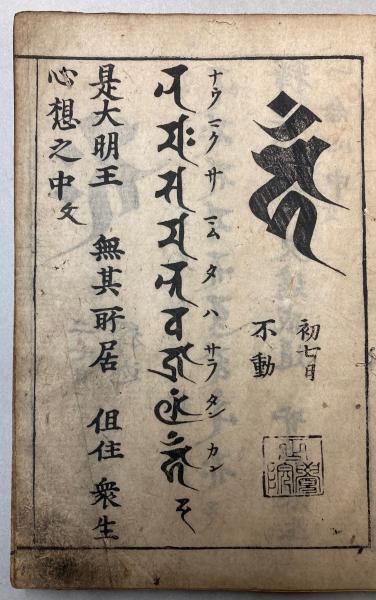 𑖮𑖯𑖽
初七日
不動
ナウ マク サ マム タ ハ サラ タン カン
𑖡𑖦𑖾𑖭𑖦𑖡𑖿𑖝𑖪𑖕𑖿𑖨𑖜𑖯𑖽𑖮𑖯𑖽
是大明王 無其所居 但住 衆生
心想之中文